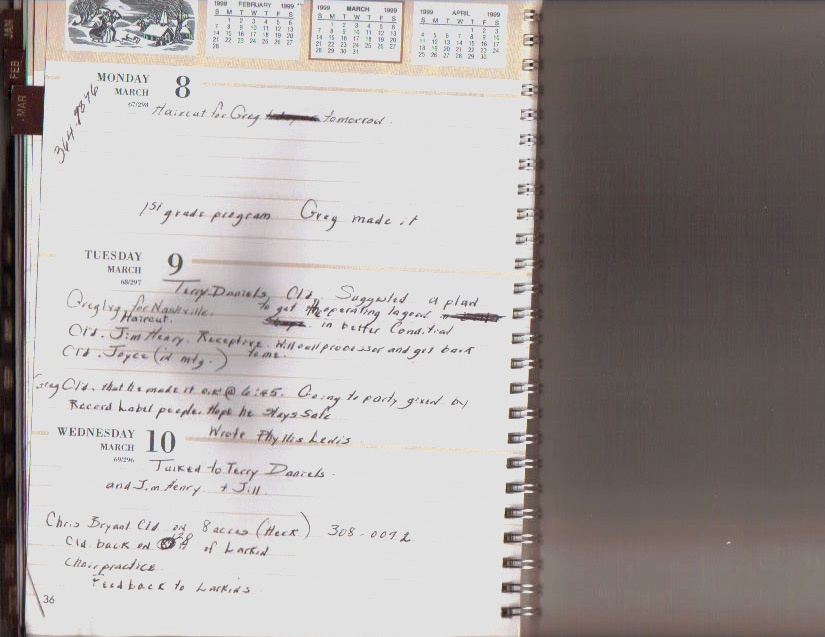 1999 FEBRUARY 1999
S M T W T F S
1 2 3 4 5 6
7 8 9 10 11 12 13
14 15 16 17 18 19 20
21 22 23 24 25 26 27
28
1999 MARCH 1999
S M T W T F S
1 2 3 4 5 6
7 8 9 10 11 12 13
14 15 16 17 18 19 20
21 22 23 24 25 26 27
28 29 30 31
1999 APRIL 1999
S M T W T F S
1 2 3
4 5 6 7 8 9 10
11 12 13 14 15 16 17
18 19 20 21 22 23 24
25 26 27 28 29 30
JAN
FEB
MAR
MONDAY 8
MARCH
67/298
364-9876
Haircut for Greg tomorrow.
1st grade program Greg made it
TUESDAY 9
MARCH
68/297
Terry Daniels Cld. Suggested a plan
Greg lvg. for Nashville. to get the operating lagoon in
Haircut. in better Condition
Cld. Jim Henry. Receptive. Will call processor and get back
Cld. Joyce (in mtg.) to me.
Greg Cld. that he made it o.k @ 6:45. Going to party given by
Record Label people. Hope he stays safe
WEDNESDAY 10 Wrote Phyllis Lewis
MARCH
69/296
Talked to Terry Daniels.
and Jim Henry + Jill.
Chris Bryant Cld on 8 acres (Heck) 308-0072
Cld. back on of Larkin
Choir practice
Feedback to Larkins
36